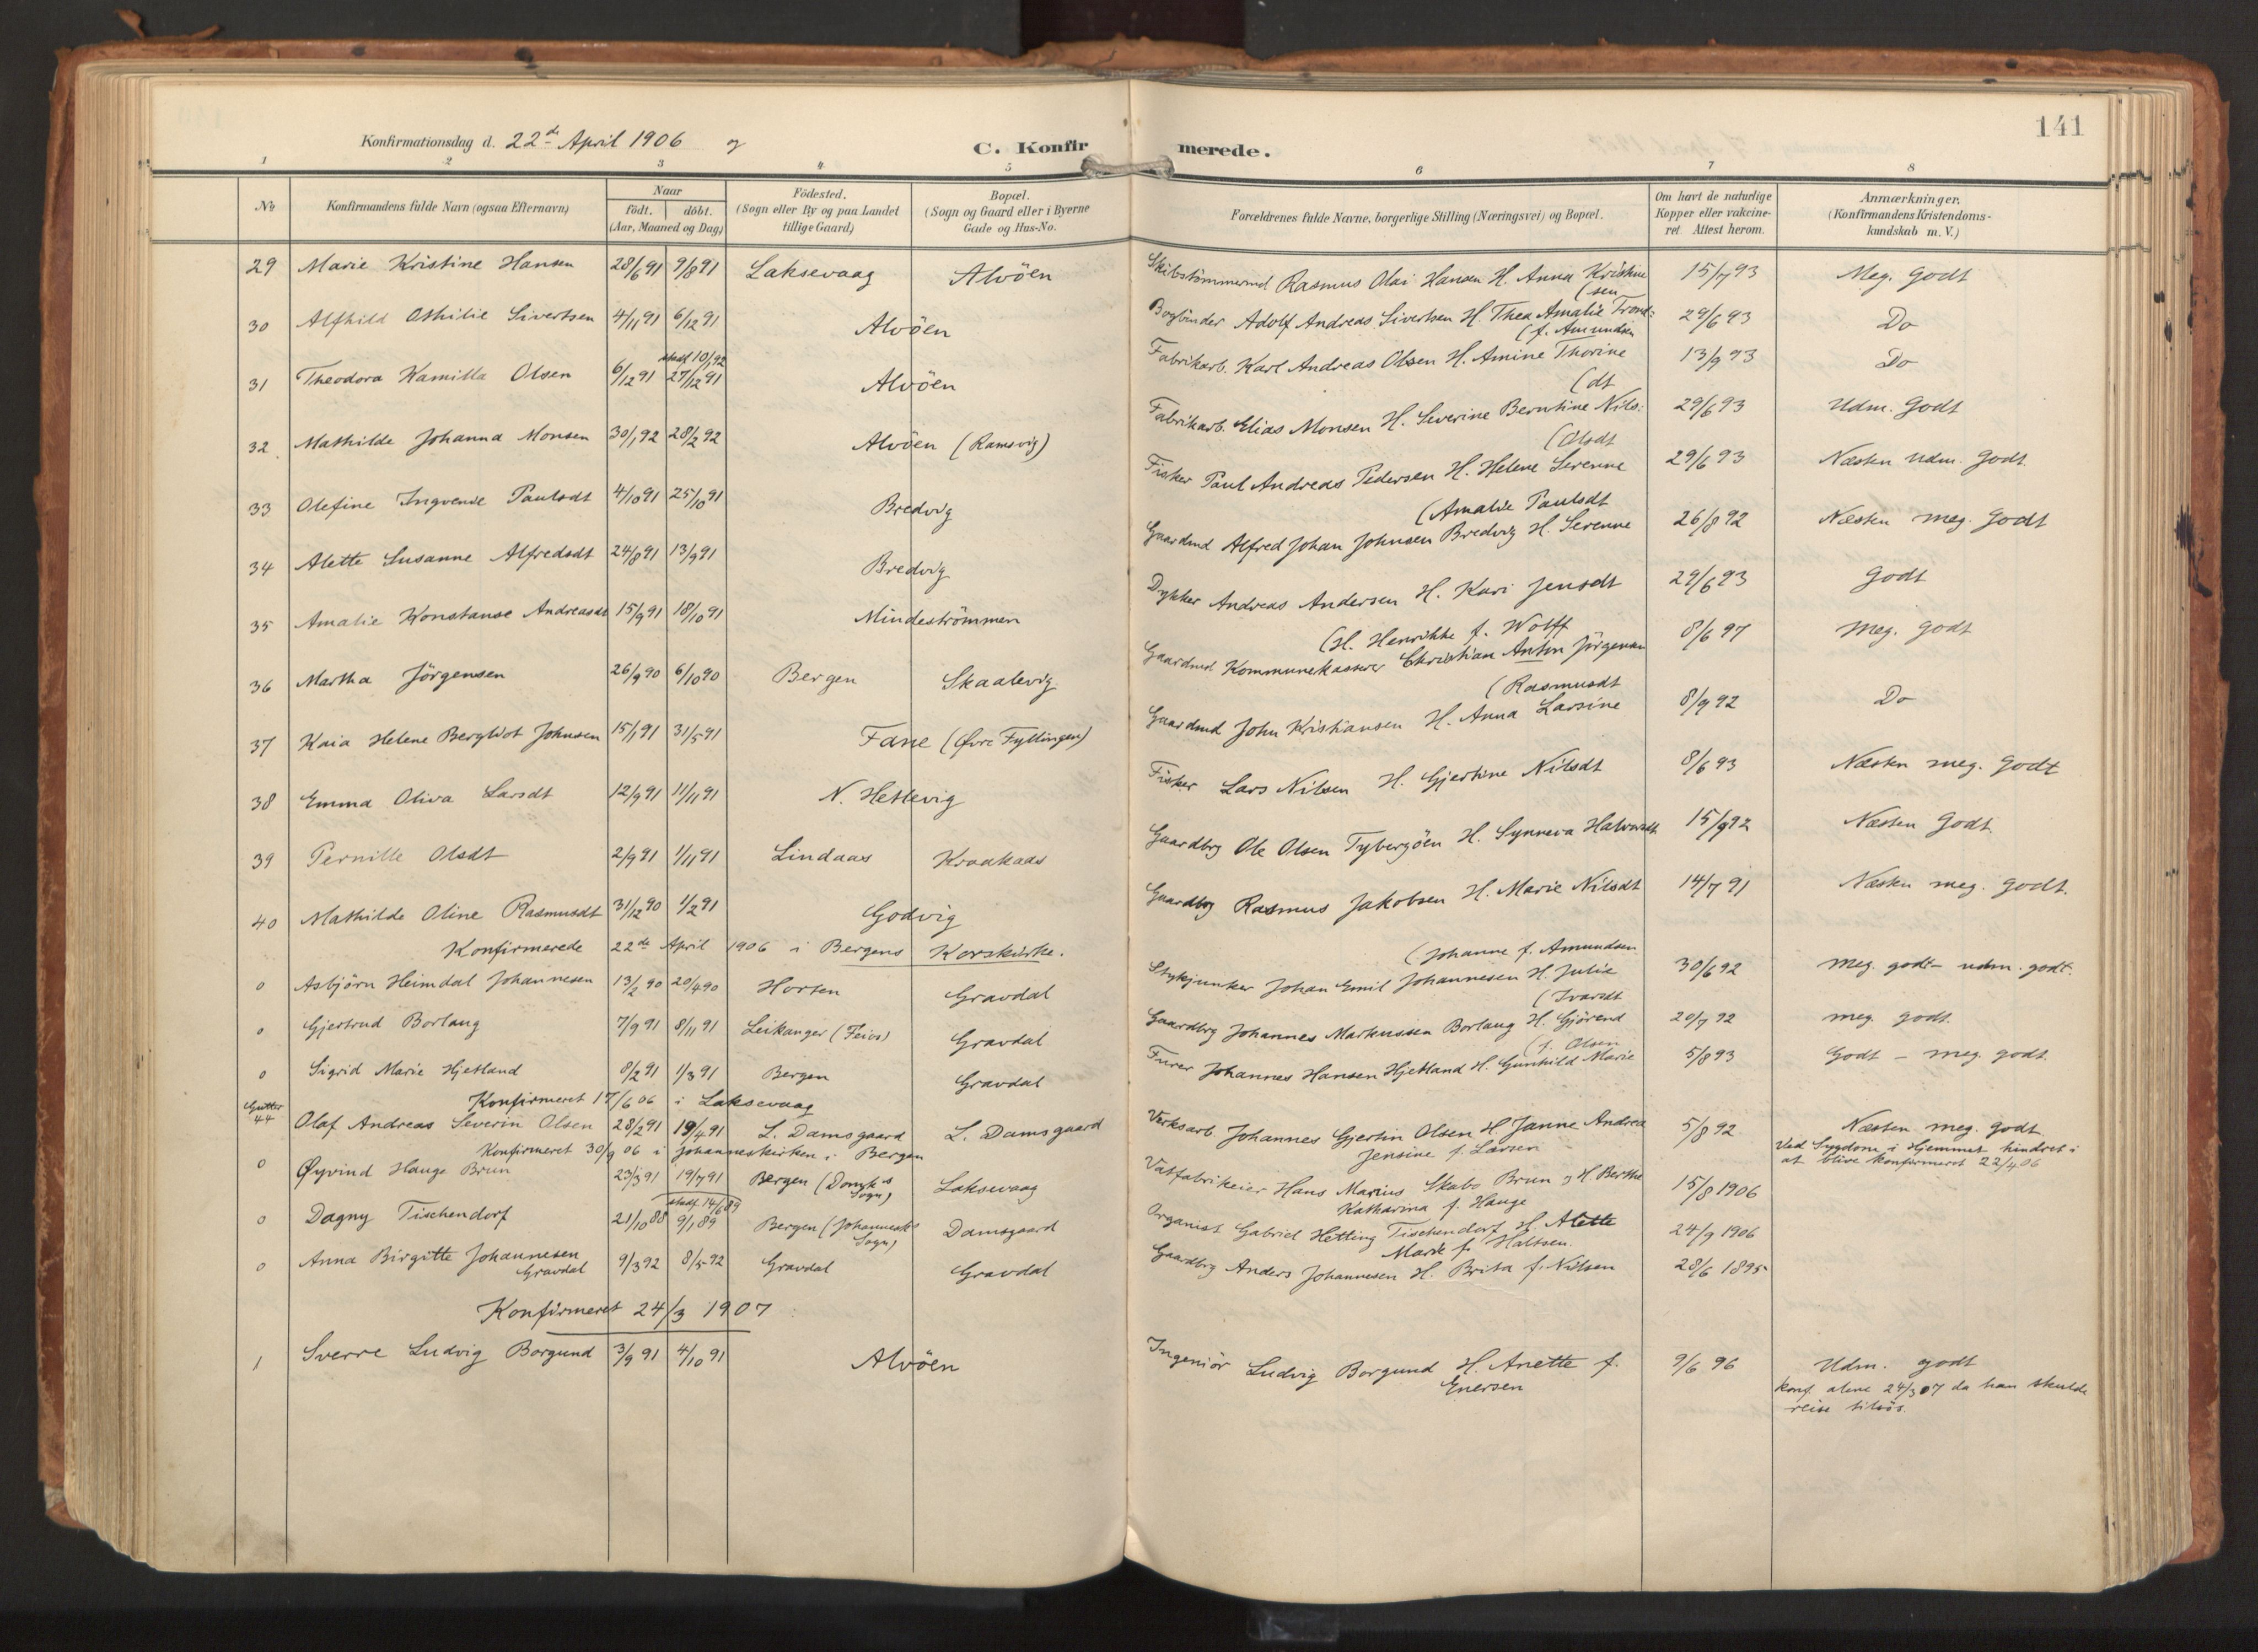 141
Konfirmationsdag d. 22de April 1906 og
C. Konfirmerede.
1 2 3 4 5 6 7 8
No
Konfirmandens fulde Navn (ogsaa Efternavn)
Naar
födt. döbt.
(Aar, Maaned og Dag)
Födested.
(Sogn eller By og paa Landet
tillige Gaard)
Bopæl.
(Sogn og Gaard eller i Byerne
Gade og Hus-No.
Forældrenes fulde Navne, borgerlige Stilling (Næringsvei) og Bopæl.
Om havt de naturlige
Kopper eller vakcine-
ret Attest herom.
Anmærkninger.
(Konfirmandens Kristendoms-
kundskab m. V.)
29 Marie Kristine Hansen 28/6 91 9/8 91 Laksevaag Alvöen Skibstömmermd Rasmus Olai Hansen H. Anna Kristine 15/7 93 Meg. Godt
(sen
30 Alfhild Othilie Sivertsen 4/11 91 6/12 91 Alvöen Bogbinder Adolf Andreas Sivertsen H. Thea Amalie Trond: 29/6 93 Do
(f. Amundsen
stadf 10/1 92
31 Theodora Kamilla Olsen 6/12 91 27/12 91 Alvöen Fabrikarb. Karl Andreas Olsen H. Amine Thorine 13/9 93 Do
(dt
32 Mathilde Johanna Monsen 30/1 92 28/2 92 Alvöen (Ramsvig) Fabrikarb. Elias Monsen H. Severine Berntine Nils: 29/6 93 Udm. Godt
(Olsdt
33 Olefine Ingvende Paulsdt 4/10 91 25/10 91 Bredvig Fisker Paul Andreas Pedersen H. Helene Serenne 29/6 93 Næsten udm. Godt
(Amalie Paulsdt
34 Alette Susanne Alfredsdt 24/8 91 13/9 91 Bredvig Gaardmd Alfred Johan Johnsen Bredvig H. Serenne 26/8 92 Næsten meg. Godt
35 Amalie Konstanse Andreasdt 15/9 91 18/10 91 Mindeströmmen Dykker Andreas Andersen H. Kari Jensdt 29/6 93 Godt
(H. Henrikke f. Wolff
36 Martha Jörgensen 26/9 90 6/10 90 Bergen Skaalevig Gaardmd Kommunekasserer Christian Anton Jörgensen 8/6 97 Meg. Godt
(Rasmusdt
37 Kaia Helene Bergliot Johnsen 15/1 91 31/5 91 Fane (Øvre Fyllingen) Gaardmd John Kristiansen H. Anna Larsine 8/9 92 Do
38 Emma Oliva Larsdt 12/9 91 11/11 91 N. Hetlevig Fisker Lars Nilsen H. Gjertine Nilsdt 8/6 93 Næsten meg. Godt
39 Pernille Olsdt 2/9 91 1/11 91 Lindaas Kraakaas Gaardbrg Ole Olsen Tybergöen H. Synneva Halvorsdt 15/9 92 Næsten Godt.
40 Mathilde Oline Rasmusdt 31/12 90 1/2 91 Godvig Gaardbrg Rasmus Jakobsen H. Marie Nilsdt 14/7 91 Næsten meg. Godt.
Konfirmerede 22de April 1906 i Bergens Korskirke.
(Johanne f. Amundsen
0 Asbjörn Heimdal Johannesen 13/2 90 20/4 90 Horten Gravdal Stykjunker Johan Emil Johannesen H. Julie 30/6 92 Meg. godt - udm. godt.
(Ivarsdt
0 Gjertrud Borlaug 7/9 91 8/11 91 Leikanger (Feios) Gravdal Gaardbrg Johannes Markussen Borlaug H. Gjörend 20/7 92 meg. godt.
(f. Olsen
0 Sigrid Marie Hjetland 8/2 91 1/3 91 Bergen Gravdal Furer Johannes Hansen Hjetland H. Gunhild Marie 5/8 93 Godt - meg. godt.
Konfirmeret 17/6 06 i Laksevaag
Gutter
44 Olaf Andreas Severin Olsen 28/2 91 19/4 91 L. Damsgaard L. Damsgaard Verksarb. Johannes Gjertin Olsen H. Janne Andrea 5/8 92 Næsten meg. godt
Jensine f. Larsen
Ved Sygdom i Hjemmet hindret i
at blive konfirmeret 22/4 06
Konfirmeret 30/9 06 i Johanneskirken i Bergen
0 Øyvind Hauge Brun 23/3 91 19/7 91 Bergen (Domk.s Sogn) Laksevaag Vatfabrikeier Hans Marius Skabo Brun og H. Berthe 15/8 1906
Katharina f. Hauge
stadf. 14/6 89
0 Dagny Tischendorf 21/10 88 9/1 89 Bergen (Johannesk.s Sogn) Damsgaard Organist Gabriel Hetting Tischendorf H. Alette 24/9 1906
Marie f. Haltsen.
0 Anna Birgitte Johannesen 9/3 92 8/5 92 Gravdal Gravdal Gaardbrg Anders Johannesen H. Brita f. Nilsen 28/6 1895
Gravdal
Konfirmeret 24/3 1907
1 Sverre Ludvig Borgund 3/9 91 4/10 91 Alvöen Ingeniör Ludvig Borgund H. Anette f. 9/6 96 Udm. godt
Enersen
konf. alene 24/3 07 da han skulde
reise tilsös.